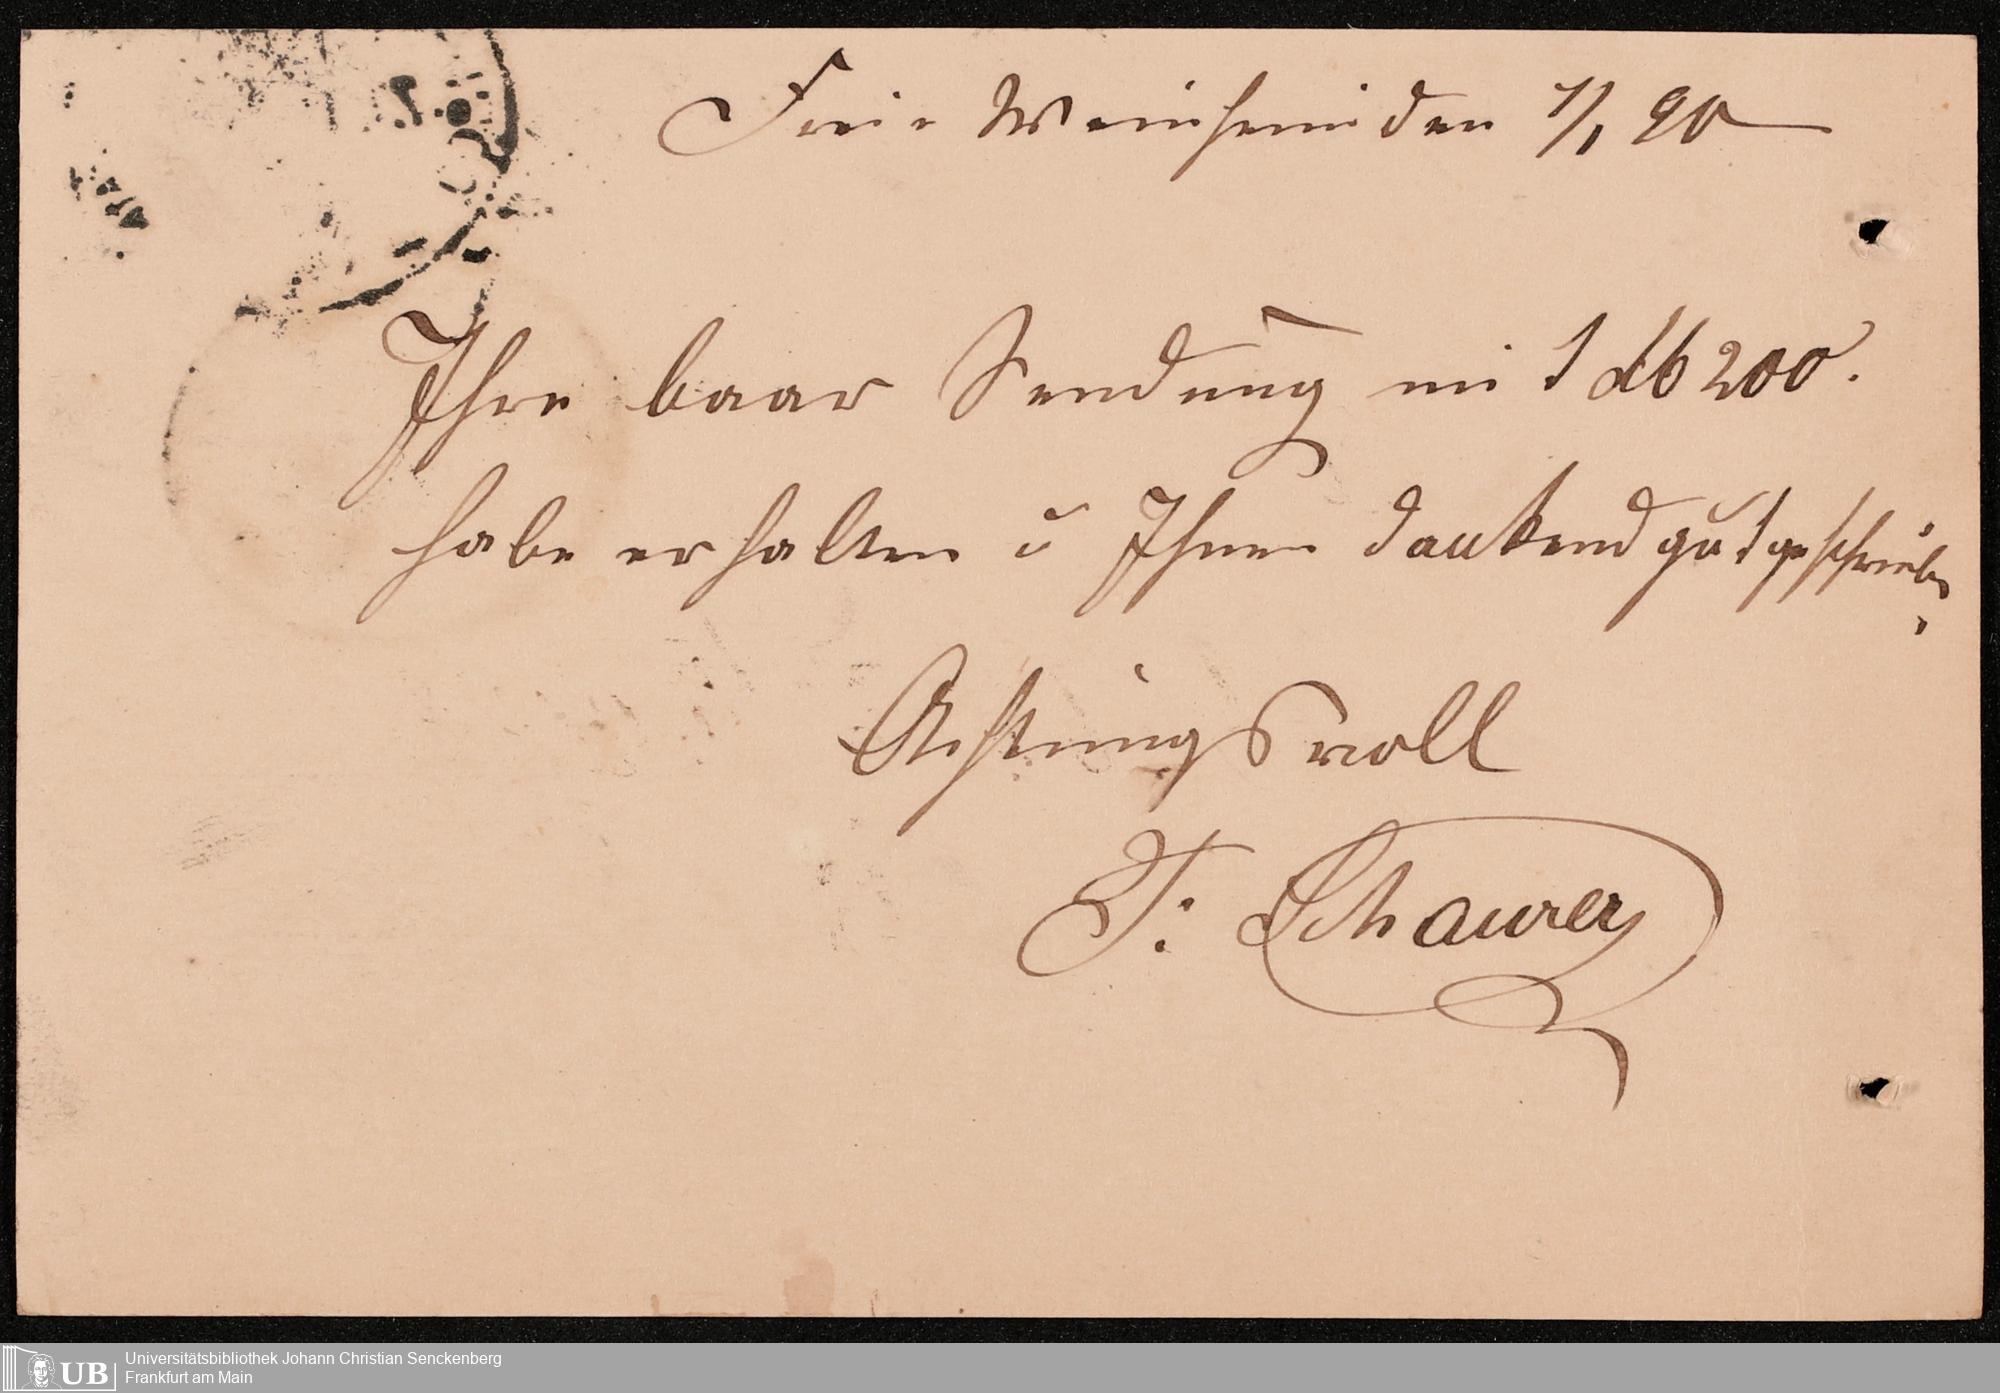 Frei-Weinheim den 7/1 90
Ihre baar Sendung mit M 200.
habe erhalten u Ihnen dankend gutgeschrieben.
Achtungsvoll
F: Schaurer
UB
Universitätsbibliothek Johann Christian Senckenberg
Frankfurt am Main